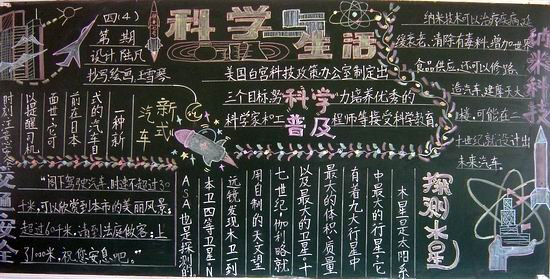 四(4)
第 期
设计 陆凡
抄写绘画 王雪琴
科学
生活
美国白宫科技政策办公室制定出
三个目标努
力培养优秀的
科学家和工
程师等接受科学教育
科学
普及
纳米技术可以治疗疾病,延
缓衰老、清除有毒料、增加世界
食品供应,还可以修路、
造汽车、建摩天大
楼,可能在二
十世纪就设计出
未来汽车。
纳米科技
新式
汽车
一种新
式的汽车目
前在日本
面世,它可
以提醒司机
时刻注意安
交通安全
"阁下驾驶汽车,时速不超过30
千米,可以欣赏到本市的美丽风景;
超过60千米,请到法庭做客;上
引100米,祝您安息吧。"
探测木星
木星是太阳系
中最大的行星,它
有着九大行星中
最大的体积、质量
以及最大的卫星。十
七世纪,伽利略就
用自制的天文望
远镜发现木卫一到
木卫四等卫星。N
ASA也是探测的